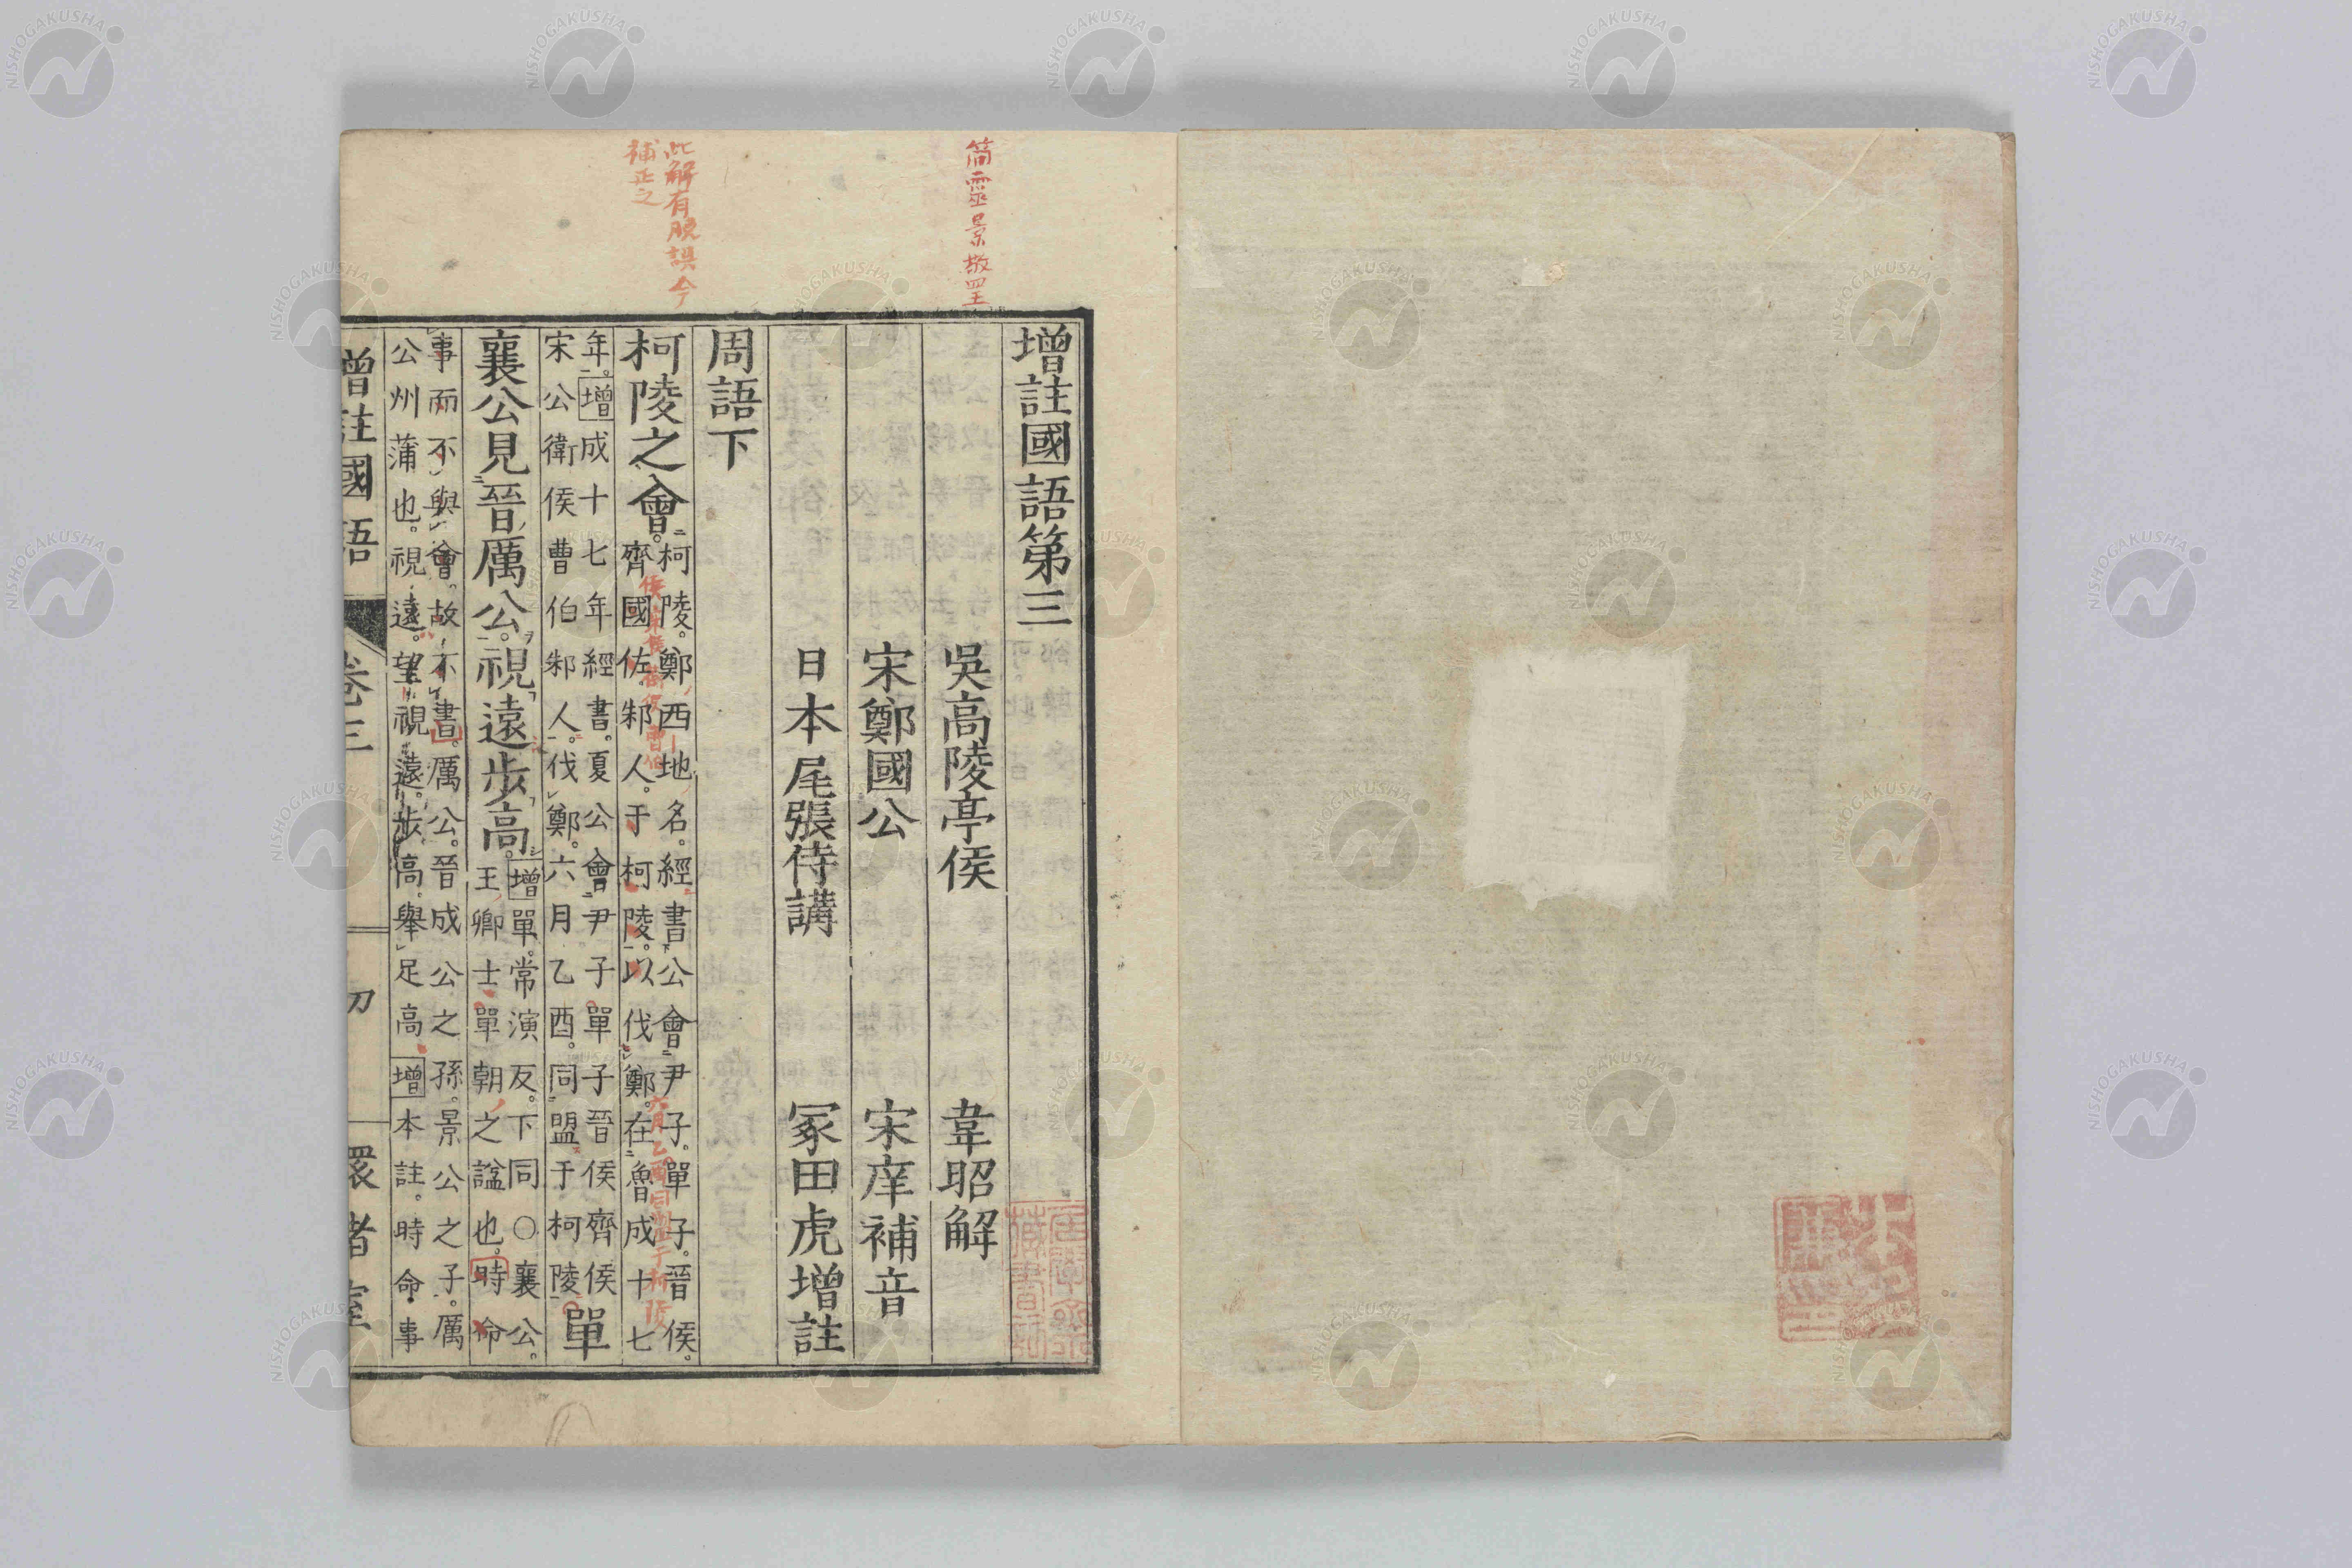 簡靈景敬四王
增註國語第三
吳高陵亭侯 韋昭解
宋鄭國公 宋庠補音
日本尾張侍講 冢田虎增註
周語下
此解有脫誤今
補正之
柯陵之會。
柯陵。鄭西地名。經書公會尹子。單子。晉侯。
齊國佐。邾人。于柯陵。以伐鄭。在魯成十七
侯宋
六月乙酉同盟于柯陵
年。增成十七年經書。夏公會尹子單子晉侯齊侯
宋公衛侯曹伯邾人。伐鄭。六月乙酉。同盟于柯陵
單
襄公見晉厲公。視遠步高。
增單。常演反。下同○襄公。
王卿士單朝之諡也。時命
事而不與會。故不書。厲公。晉成公之孫。景公之子。厲
公州蒲也。視遠。望視遠。步高。舉足高增本註。時命事
增註國語 卷三
NISHOGAKUSHA